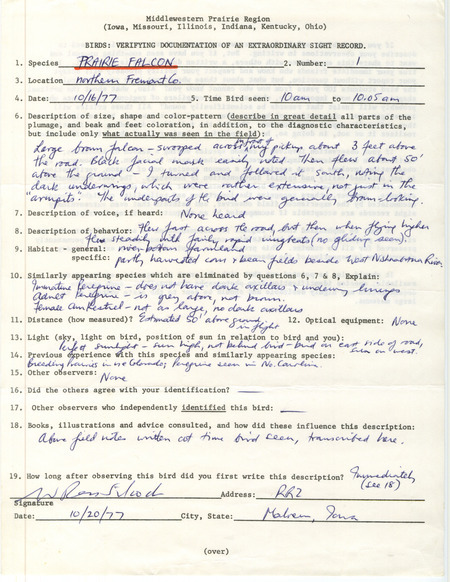 Middlewestern Prairie Region
(Iowa, Missouri, Illinois, Indiana, Kentucky, Ohio)
BIRDS: VERIFYING DOCUMENTATION OF AN EXTRAORDINARY SIGHT RECORD.
1. Species PRAIRIE FALCON 2. Number: 1
3. Location northern Fremont Co.
4. Date: 10/16/77 5. Time Bird seen: 10am to 10:05am
6. Description of size, shape and color-pattern (describe in great detail all parts of the
plumage, and beak and feet coloration, in addition, to the diagnostic characteristics,
but include only what actually was seen in the field):
Large brown falcon - swooped across my pickup about 3 feet above
the road. Black facial mask easily noted. Then flew about 50'
above the ground - I turned and followed it south, noting the
dark underwings, which were rather extensive, not just in the
"armpits". The underparts of the bird were generally looking.
7. Description of voice, if heard: None heard
8. Description of behavior: flew fast across the road, but then when flying higher
flew steadily with fairly rapid wingbeats (no gliding seen).
9. Habitat - general: river bottom farmland
specific: partly harvested corn & bean fields beside West Nishnabotna River.
10. Similarly appearing species which are eliminated by questions 6, 7 & 8, Explain:
Immature Peregrine - does not have dark axillars & underwing linings
Adult Peregrine - is grey above, not brown.
Female Am Kestrel - not as large, no dark axillars
11. Distance (how measured)? Estimated 50' above ground in flight 12. Optical equipment: None
13. Light (sky, light on bird, position of sun in relation to bird and you):
sunlight - sun high, not behind bird - bird on east side of road, on west.
14. Previous experience with this species and similarly appearing species:
Breeding Prairies in Colorado; Peregrine seen in No. Carolina.
15. Other observers:
None
16. Did the others agree with your identification? —
17. Other observers who independently identified this bird: —
18. Books, illustrations and advice consulted, and how did these influence this description:
Above field notes written at time bird seen, transcribed here.
19. How long after observing this bird did you first write this description? Immediately
(see 18)
W Ross Silcock Address: RR2
Signature
Date: 10/20/77 City, State: Malvern, Iowa
(over)